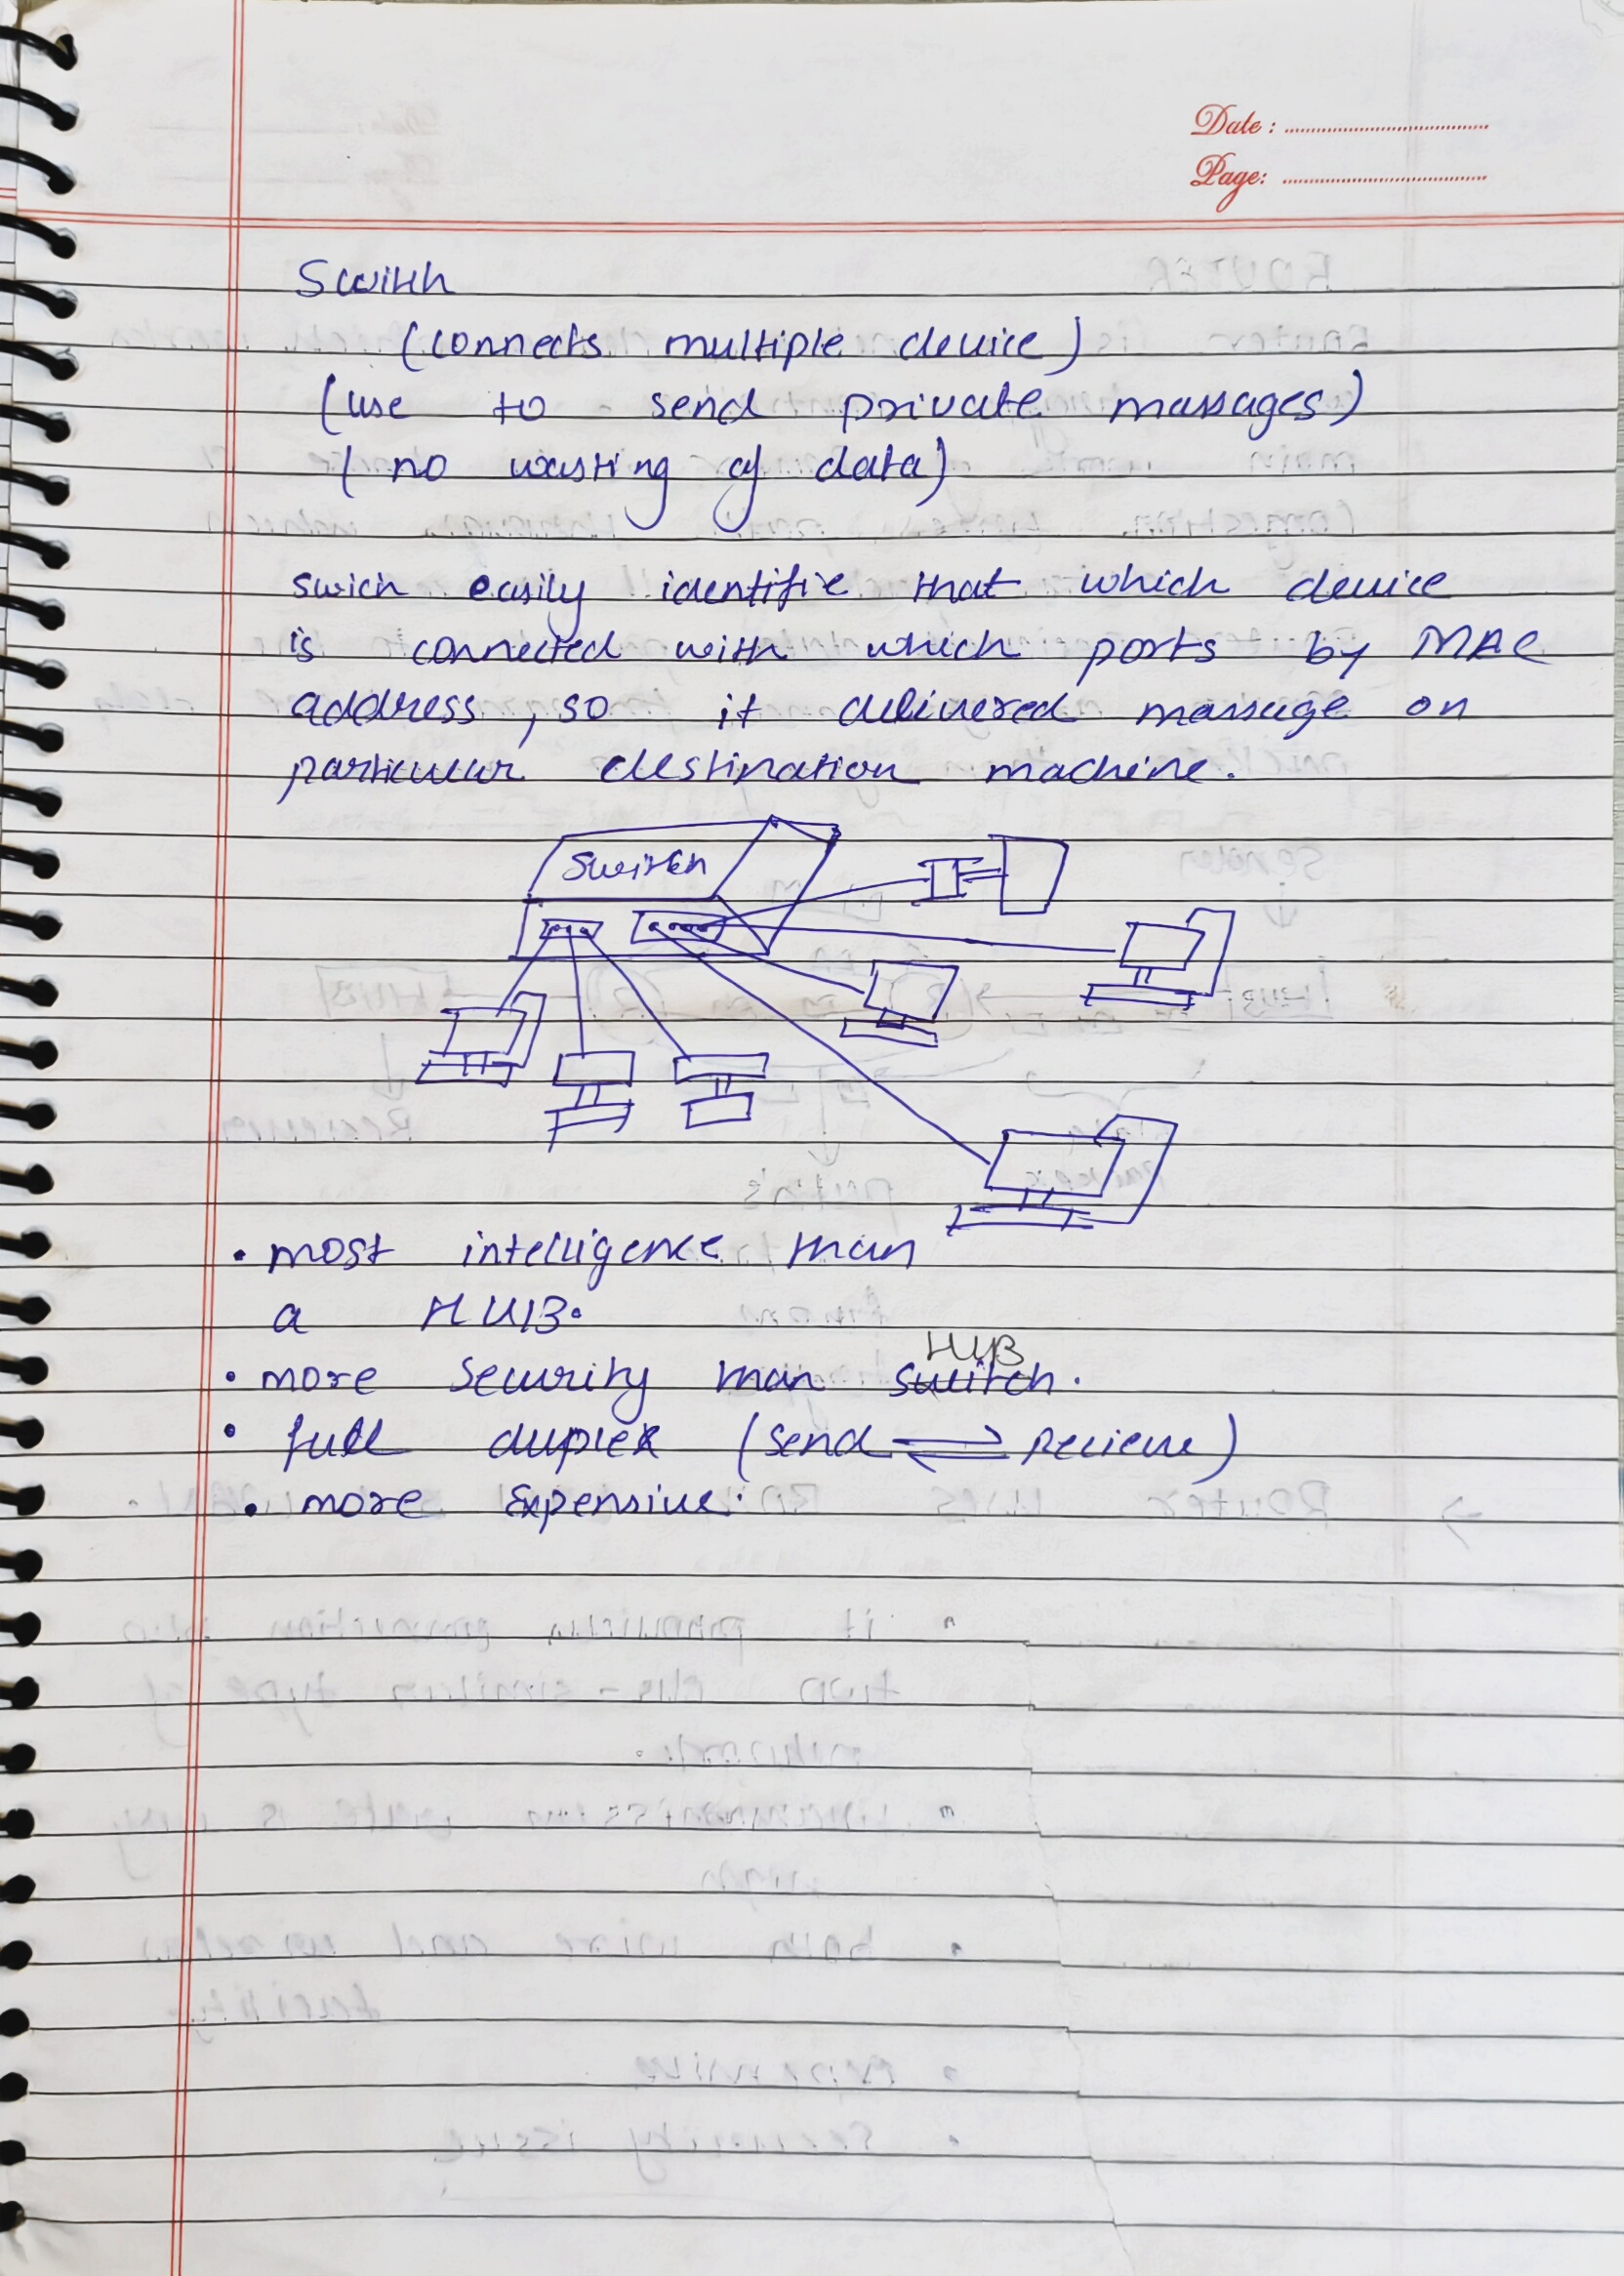 Date :
Page:
Switch
(connects multiple device)
(use to send private massages)
(no wasting of data)
swich easily identifie that which device
is connected with which ports by MAC
address, so it delivered massage on
particular destination machine.
Switch
• most intelligence than
a HUB.
HUB
• more security than switch.
• full duplex (send ⇌ Recieve)
• more Expensive.